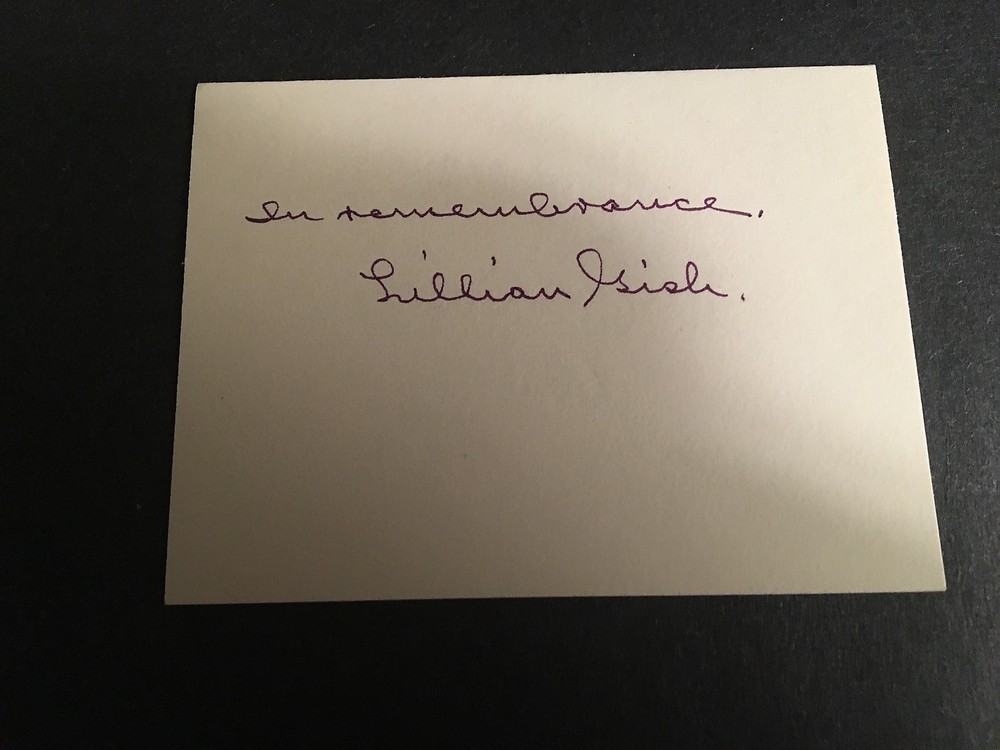 In remembrance.
Lillian Gish.